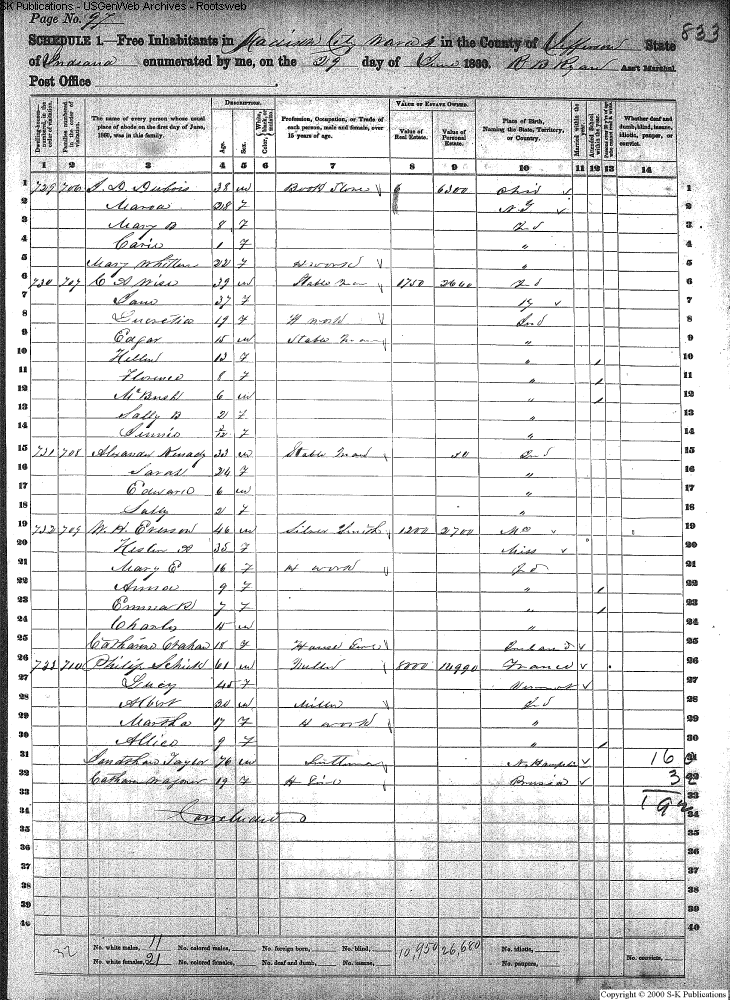 SK Publications - USGenWeb Archives - Rootsweb
Page No. 97
833
SCHEDULE 1.—Free Inhabitants in Madison City Ward 4 in the County of Jefferson State
of Indiana enumerated by me, on the 29 day of June 1860. R D Ryan Ass't Marshal.
Post Office
Dwelling-houses—numbered in the order of visitation.
Families numbered in the order of visitation.
The name of every person whose usual place of abode on the first day of June, 1860, was in this family.
DESCRIPTION.
Age.
Sex.
Color, White, black, or mulatto.
Profession, Occupation, or Trade of each person, male and female, over 15 years of age.
VALUE OF ESTATE OWNED.
Value of Real Estate.
Value of Personal Estate.
Place of Birth, Naming the State, Territory, or Country.
Married within the year.
Attended School within the year.
Whether deaf and dumb, blind, insane, idiotic, pauper, or convict.
1 2 3 4 5 6 7 8 9 10 11 12 13 14
1 729 706 Dubois 38 m Book Store 6300 Ohio 1
2 28 f N.J 2
3 Mary B 8 f Ind 3
4 Carie 1 f " 4
5 Mary 22 f H work " 5
6 730 707 C A Wise 39 m Stable Man 1750 2600 Ind 6
7 Jane 37 f Ky 7
8 Lucretia 19 f H work Ind 8
9 Edgar 15 m Stable Man " 9
10 Hellen 13 f " / 10
11 Florence 8 f " / 11
12 6 m " / 12
13 Sally B 2 f " 13
14 Jennie /12 f " 14
15 731 708 Alexander 33 m Stable Man 50 Ind 15
16 Sarah 24 f " 16
17 Edward 6 m " 17
18 Sally 2 f " 18
19 732 709 W. H. Everson 46 m Silver Smith 1200 2700 19
20 Hester A 35 f Miss 20
21 Mary E 16 f H work Ind 21
22 Anna 9 f " / 22
23 Emma B 7 f " / 23
24 Charly m " 24
25 Catharine Graham 18 f House Ireland 25
26 733 710 Philip Schick 61 m Miller 8000 14990 France 26
27 Lucy 45 f Vermont 27
28 Albert 30 m Miller Ind 28
29 Martha 17 f H work " 29
30 Allice 9 f " / 30
31 Taylor 76 m N. Hamps 31
32 Catharine Wagoner 19 f H Prusia 32
33 33
34 Concluded 34
35 35
36 36
37 37
38 38
39 39
40 40
16
3
192
32 No. white males, 11 No. colored males, No. foreign born, No. blind, 10,950 26,680 No. idiotic, No. convicts,
No. white females, 21 No. colored females, No. deaf and dumb, No. insane, No. paupers,
Copyright © 2000 S-K Publications